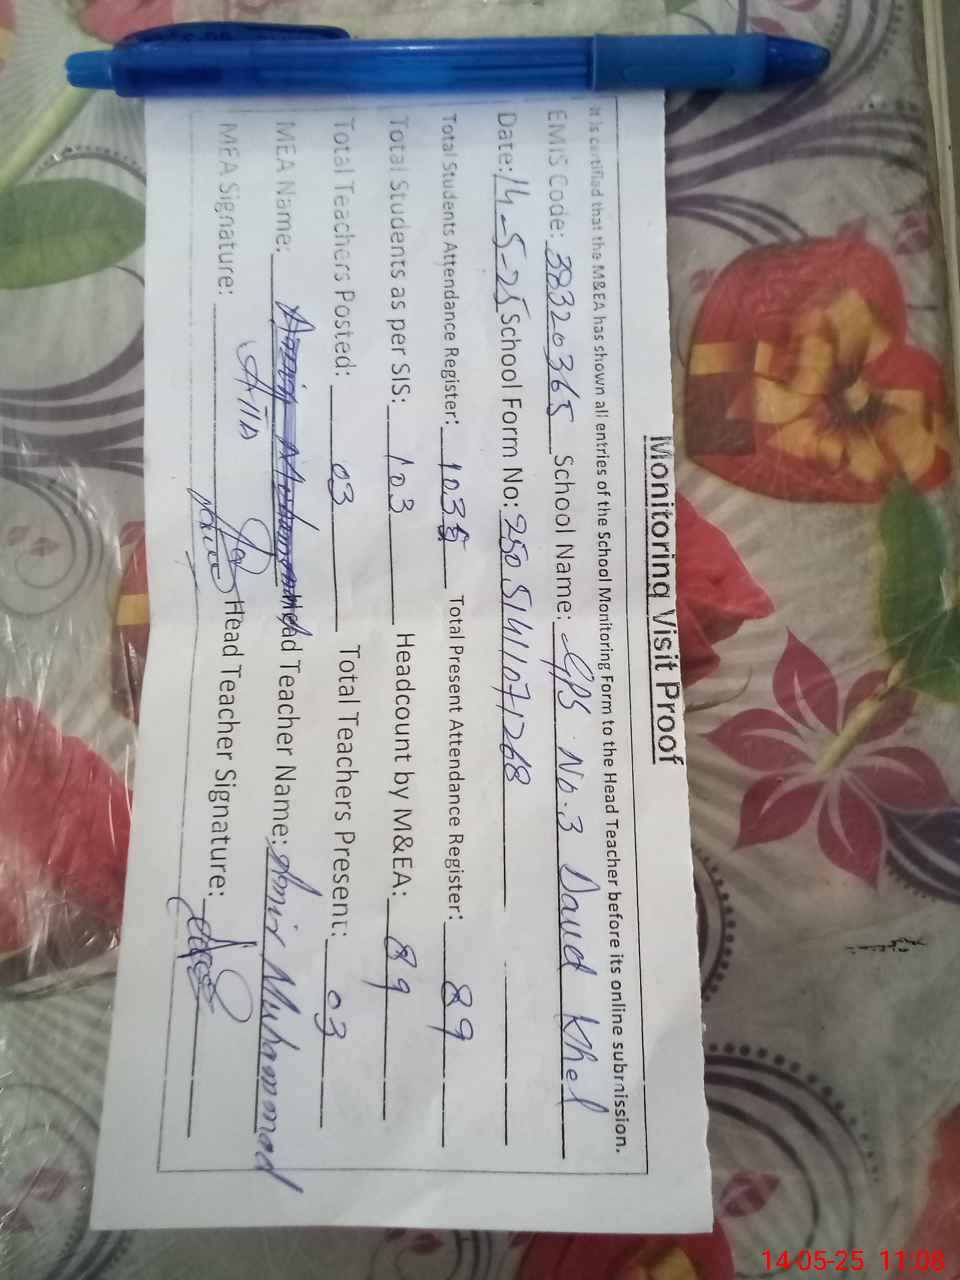 Monitoring Visit Proof
It is certified that the M&EA has shown all entries of the School Monitoring Form to the Head Teacher before its online submission.
EMIS Code: 38320365 School Name: GPS No.3 Daud Khel
Date: 14-5-25 School Form No: 2505141071268
Total Students Attendance Register: 103 Total Present Attendance Register: 89
Total Students as per SIS: 103 Headcount by M&EA: 89
Total Teachers Posted: 03 Total Teachers Present: 03
MEA Name: Head Teacher Name: Amir Muhammad
MEA Signature: Head Teacher Signature:
14-05-25 11:08